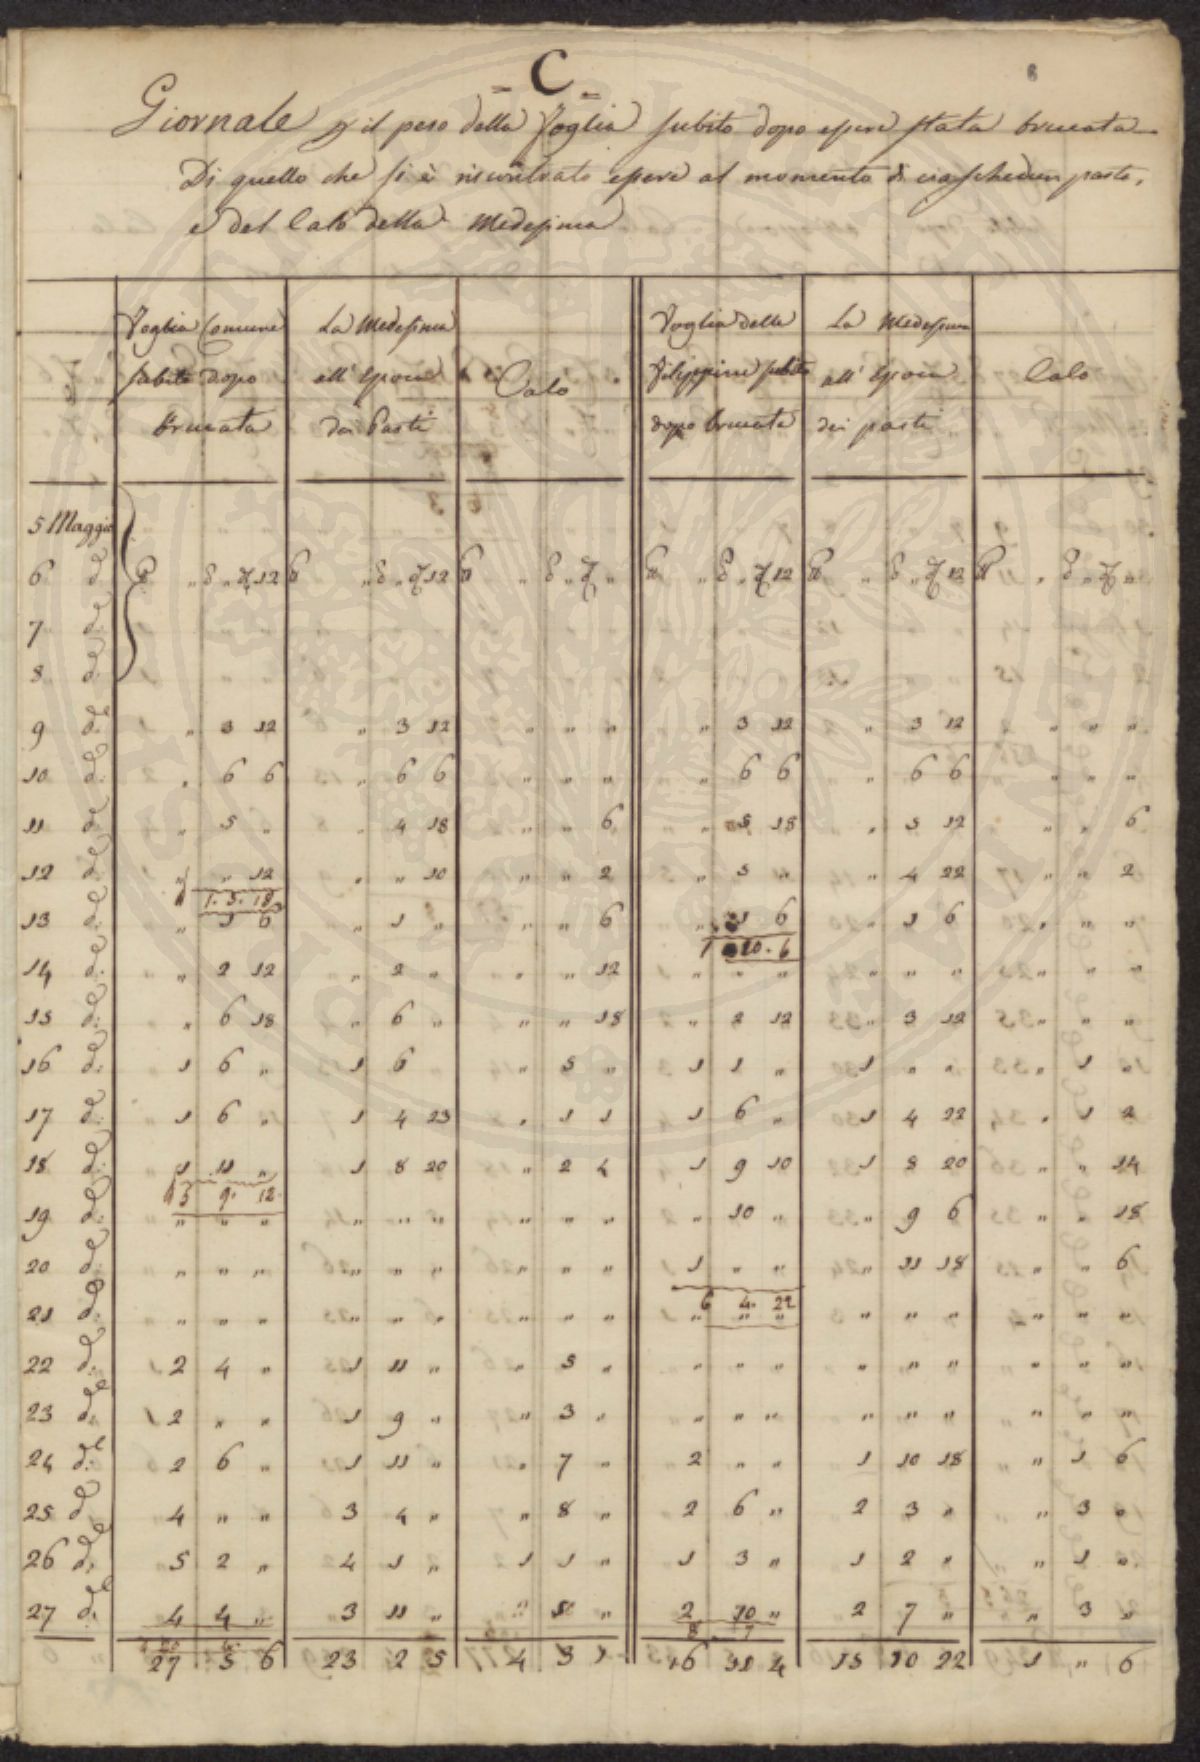 = C =
6
Giornale p il peso della Foglia subito dopo essere stata brucata
Di quello che si è riscontrato essere al momento di ciaschedun pasto,
e del Calo della Medesima
Foglia Comune subito dopo brucata | La Medesima all' Epoca dei Pasti | Calo | Foglia delle Filippine subito dopo brucata | La Medesima all' Epoca dei pasti | Calo
5 Maggio
6 d. | " " 12 | " " 12 | " " " | " " 12 | " " 12 | " " "
7 d.
8 d.
9 d. | " 3 12 | " 3 12 | " " " | " 3 12 | " 3 12 | " " "
10 d. | " 6 6 | " 6 6 | " " " | " 6 6 | " 6 6 | " " "
11 d. | " 5 " | " 4 18 | " " 6 | " 5 18 | " 5 12 | " " 6
12 d. | " " 12 | " " 10 | " " 2 | " 5 " | " 4 22 | " " 2
1. 3. 18
13 d. | " 1 6 | " 1 " | " " 6 | " 1 6 | " 1 6 | " " "
1 10. 6
14 d. | " 2 12 | " 2 " | " " 12 | " " " | " " " | " " "
15 d. | " 6 18 | " 6 " | " " 18 | " 2 12 | " 3 12 | " " "
16 d. | 1 6 " | 1 6 | " 5 " | 1 1 " | 1 " " | " 1 "
17 d. | 1 6 " | 1 4 23 | " 1 1 | 1 6 " | 1 4 22 | " 1 2
18 d. | 1 11 " | 1 8 20 | " 2 4 | 1 9 10 | 1 8 20 | " " 14
5 9. 12.
19 d. | " " " | " " " | " " " | " 10 " | " 9 6 | " " 18
20 d. | " " " | " " " | " " " | 1 " " | " 11 18 | " " 6
6 4. 22
21 d. | " " " | " " " | " " " | " " " | " " " | " " "
22 d. | 2 4 " | 1 11 " | " 5 " | " " " | " " " | " " "
23 d. | 2 " " | 1 9 " | " 3 " | " " " | " " " | " " "
24 d. | 2 6 " | 1 11 " | " 7 " | 2 " " | 1 10 18 | " 1 6
25 d. | 4 " " | 3 4 " | " 8 " | 2 6 " | 2 3 " | " 3 "
26 d. | 5 2 " | 4 1 " | 1 1 " | 1 3 " | 1 2 " | " 1 "
27 d. | 4 4 " | 3 11 " | " " | 2 10 " | 2 7 " | " 3 "
20 4. | 8 7
27 5 6 | 23 2 5 | 4 3 1 | 16 11 4 | 15 10 22 | 1 " 6